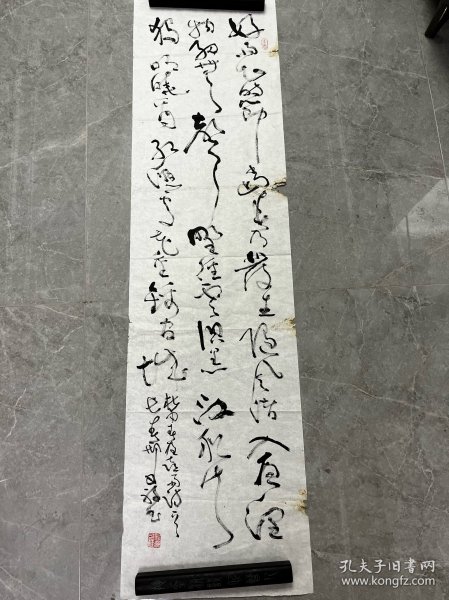 好雨知時節當春乃發生隨風潛入夜潤
物細無聲野徑雲俱黑江船火
獨明曉看紅濕處花重錦官城
杜甫春夜喜雨詩
孔夫子旧书网
www.kongfz.com